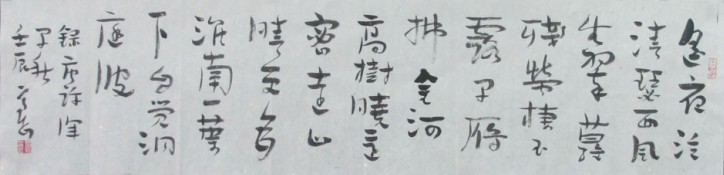 遥夜泛
清瑟西風
生翠蘿
殘螢棲玉
露早雁
拂金河
高樹曉還
密遠山
晴更多
淮南一葉
下自覺洞
庭波
録唐許渾
早秋
壬辰